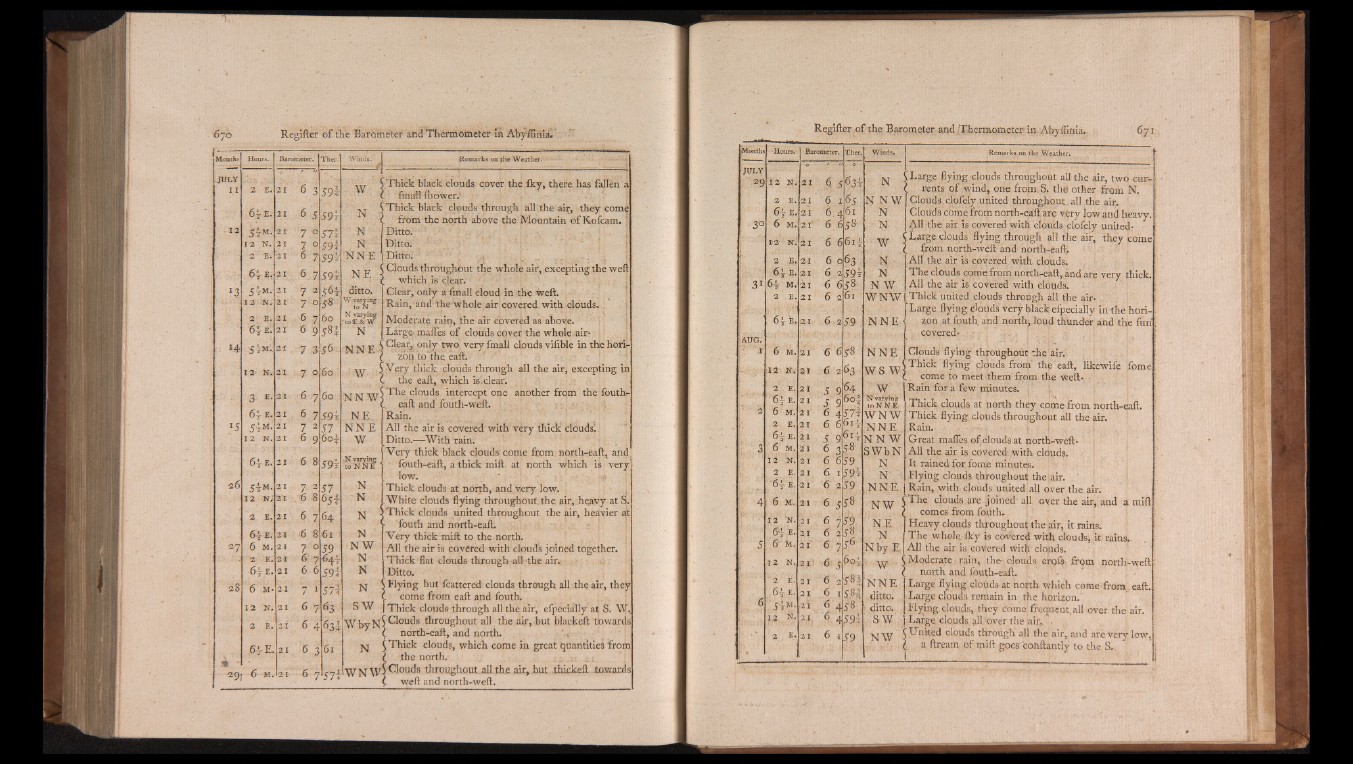 670 Regiſter of the Barometer and Thermometer in Abyſſinia.
Months Hours. Barometer. Ther. Winds. Remarks on the Weather.
JULY
11 2 E. 21 6 3 59½ W Thick black clouds cover the ſky, there has fallen a
ſmall ſhower.
6½ E. 21 6 5 59½ N Thick black clouds through all the air, they come
from the north above the Mountain of Koſcam.
12 5¾ M. 21 7 0 57½ N Ditto.
12 N. 21 7 0 59½ N Ditto.
2 E. 21 6 7 59½ N N E Ditto.
6½ E. 21 6 7 59½ N E Clouds throughout the whole air, excepting the weſt
which is clear.
13 5½ M. 21 7 2 56½ ditto. Clear, only a ſmall cloud in the weſt.
12 N. 21 7 0 58 W varying to N Rain, and the whole air covered with clouds.
2 E. 21 6 7 60 N varying to E & W Moderate rain, the air covered as above.
6½ E. 21 6 9 58½ N Large maſſes of clouds cover the whole air.
14 5½ M. 21 7 3 56 N N E Clear, only two very ſmall clouds viſible in the hori-
zon to the eaſt.
12 N. 21 7 0 60 W Very thick clouds through all the air, excepting in
the eaſt, which is clear.
3 E. 21 6 7 60 N N W The clouds intercept one another from the ſouth-
eaſt and ſouth-weſt.
6½ E. 21 6 7 59½ N E Rain.
15 5½ M. 21 7 2 57 N N E All the air is covered with very thick clouds.
12 N. 21 6 9 60½ W Ditto.—With rain.
6½ E. 21 6 8 59½ N varying to N N E Very thick black clouds come from north-eaſt, and
ſouth-eaſt, a thick miſt at north which is very
low.
26 5¾ M. 21 7 2 57 N Thick clouds at north, and very low.
12 N. 21 6 8 65½ N White clouds flying throughout the air, heavy at S.
2 E. 21 6 7 64 N Thick clouds united throughout the air, heavier at
ſouth and north-eaſt.
6½ E. 21 6 8 61 N Very thick miſt to the north.
27 6 M. 21 7 0 59 N W All the air is covered with clouds joined together.
2 E. 21 6 7 64½ N Thick flat clouds through all the air.
6½ E. 21 6 6 59½ N Ditto.
28 6 M. 21 7 1 57¾ N Flying but ſcattered clouds through all the air, they
come from eaſt and ſouth.
12 N. 21 6 7 63 S W Thick clouds through all the air, eſpecially at S. W.
2 E. 21 6 4 63½ W by N Clouds throughout all the air, but blackeſt towards
north-eaſt, and north.
6½ E. 21 6 3 61 N Thick clouds, which come in great quantities from
the north.
29 6 M. 21 6 7 57½ W N W Clouds throughout all the air, but thickeſt towards
weſt and north-weſt.
Regiſter of the Barometer and Thermometer in Abyſſinia. 671
Months Hours. Barometer. Ther. Winds. Remarks on the Weather.
JULY
29 12 N. 21 6 5 63½ N Large flying clouds throughout all the air, two cur-
rents of wind, one from S. the other from N.
2 E. 21 6 1 65 N N W Clouds cloſely united throughout all the air.
6½ E. 21 6 4 61 N Clouds come from north-eaſt are very low and heavy.
30 6 M. 21 6 6 58 N All the air is covered with clouds cloſely united.
12 N. 21 6 6 61½ W Large clouds flying through all the air, they come
from north-weſt and north-eaſt.
2 E. 21 6 0 63 N All the air is covered with clouds.
6½ E. 21 6 2 59½ N The clouds come from north-eaſt, and are very thick.
31 6½ M. 21 6 6 58 N W All the air is covered with clouds.
2 E. 21 6 2 61 W N W Thick united clouds through all the air.
6½ E. 21 6 2 59 N N E Large flying clouds very black eſpecially in the hori-
zon at ſouth and north, loud thunder and the ſun
covered.
AUG.
1 6 M. 21 6 6 58 N N E Clouds flying throughout the air.
12 N. 21 6 2 63 W S W Thick flying clouds from the eaſt, likewiſe ſome
come to meet them from the weſt.
2 E. 21 5 9 64 W Rain for a few minutes.
6½ E. 21 5 9 60¾ N varying to N N E Thick clouds at north they come from north-eaſt.
2 6 M. 21 6 4 57½ W N W Thick flying clouds throughout all the air.
2 E. 21 6 6 61½ N N E Rain.
6½ E. 21 5 9 61½ N N W Great maſſes of clouds at north-weſt.
3 6 M. 21 6 3 58 S W b N All the air is covered with clouds.
12 N. 21 6 6 59 N It rained for ſome minutes.
2 E. 21 6 1 59½ N Flying clouds throughout the air.
6½ E. 21 6 2 59 N N E Rain, with clouds united all over the air.
4 6 M. 21 6 5 58 N W The clouds are joined all over the air, and a miſt
comes from ſouth.
12 N. 21 6 7 59 N E Heavy clouds throughout the air, it rains.
6½ E. 21 6 2 58 N The whole ſky is covered with clouds, it rains.
5 6 M. 21 6 7 56 N by E All the air is covered with clouds.
12 N. 21 6 5 60½ W Moderate rain, the clouds croſs from north-weſt
north and ſouth-eaſt.
2 E. 21 6 2 58¾ N N E Large flying clouds at north which come from eaſt.
6½ E. 21 6 1 58¾ ditto. Large clouds remain in the horizon.
6 5¾ M. 21 6 4 58 ditto. Flying clouds, they come frequent all over the air.
12 N. 21 6 4 59½ S W Large clouds all over the air.
2 E. 21 6 1 59 N W United clouds through all the air, and are very low,
a ſtream of miſt goes conſtantly to the S.